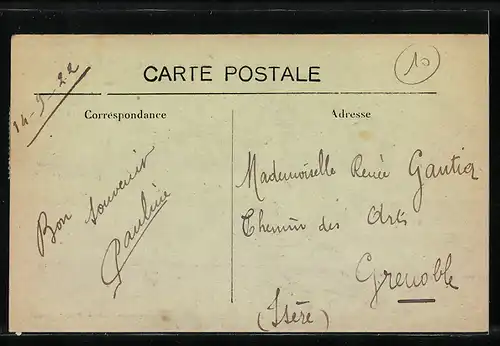 14-9-22
10
CARTE POSTALE
Correspondance
Adresse
Bon souvenir
Pauline
Mademoiselle Renée Gautier
Chemin des Arts
Grenoble
(Isère)